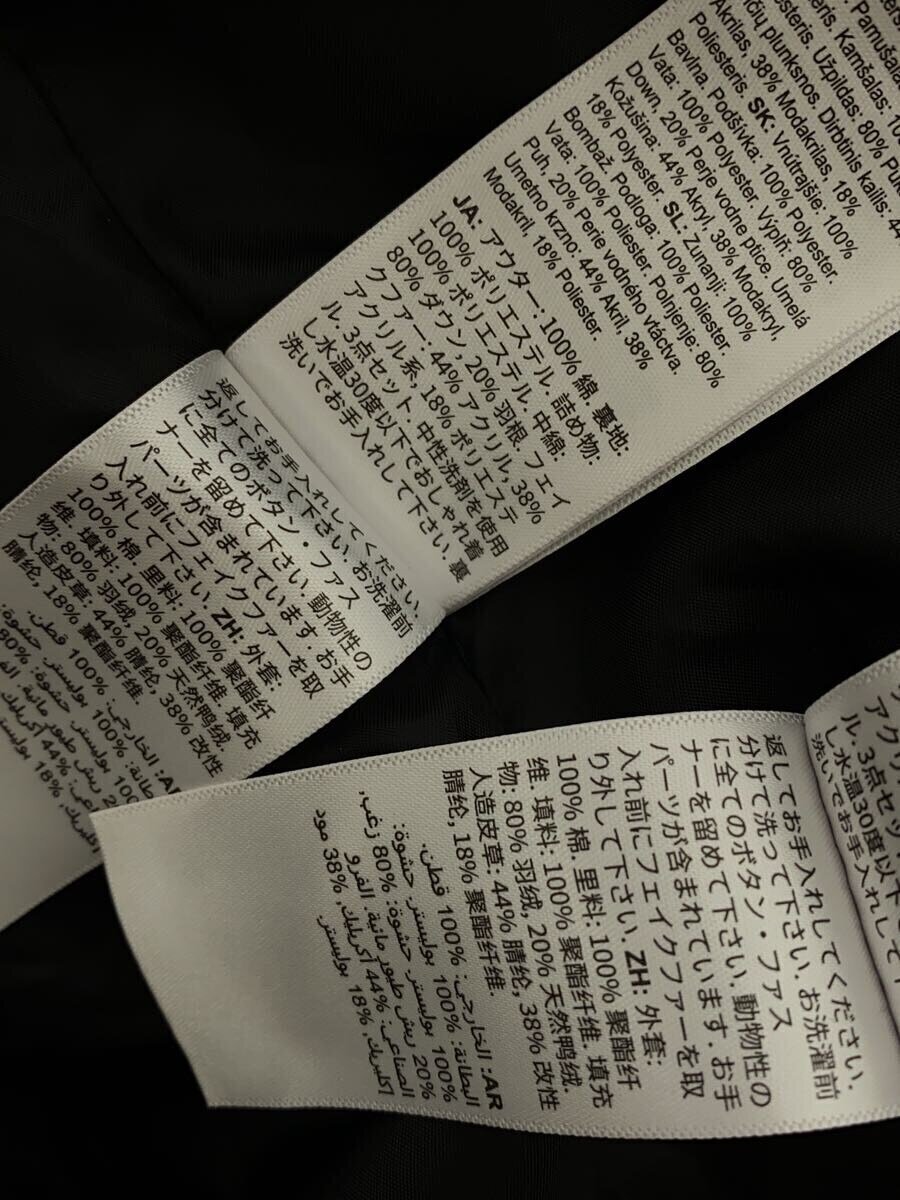 Pamušalas
Kamšalas:
Poliesteris. Užpildas: 80%
plunksnos. Dirbtinis kailis: 44
Akrilas, 38% Modakrilas, 18%
Poliesteris. SK: Vnútrajšie: 100%
Bavlna Podšívka: 100% Polyester.
Vata: 100% Polyester. Výplň: 80%
Down, 20% Perje vodne ptice. Umelá
Kožušina: 44% Akryl, 38% Modakryl,
18% Polyester. SL: Zunanji: 100%
Bombaž. Podloga: 100% Poliester.
Vata: 100% Poliester. Polnjenje: 80%
Puh, 20% Perie vodného vtáctva.
Umetno krzno: 44% Akril, 38%
Modakril, 18% Poliester.
JA: アウター: 100% 綿 裏地:
100% ポリエステル. 詰め物:
100% ポリエステル. 中綿:
80% ダウン, 20% 羽根. フェイ
クファー: 44% アクリル, 38%
アクリル系, 18% ポリエステ
ル. 3点セット. 中性洗剤を使用
し水温30度以下でおしゃれ着
洗いでお手入れして下さい. 裏
返してお手入れしてください.
分けて洗って下さい. お洗濯前
に全てのボタン・ファス
ナーを留めて下さい. 動物性の
パーツが含まれています. お手
入れ前にフェイクファーを取
り外して下さい. ZH: 外套:
100% 棉. 里料: 100% 聚酯纤
维. 填料: 100% 聚酯纤维. 填充
物: 80% 羽绒, 20% 天然鸭绒.
人造皮草: 44% 腈纶, 38% 改性
腈纶, 18% 聚酯纤维.
AR: الخارجي: 100% قطن.
アクリ
ル. 3点セッ
し水温30度以下で
洗いでお手入れして
返してお手入れしてください.
分けて洗って下さい. お洗濯前
に全てのボタン・ファス
ナーを留めて下さい. 動物性の
パーツが含まれています. お手
入れ前にフェイクファーを取
り外して下さい. ZH: 外套:
100% 棉. 里料: 100% 聚酯纤
维. 填料: 100% 聚酯纤维. 填充
物: 80% 羽绒, 20% 天然鸭绒.
人造皮草: 44% 腈纶, 38% 改性
腈纶, 18% 聚酯纤维.
AR: الخارجي: 100% قطن.
البطانة: 100% بوليستر. حشوة:
100% بوليستر. حشوة: 80% زغب,
20% ريش طيور مائية. الفرو
الصناعي: 44% أكريليك, 38% مود
أكليريك, 18% بوليستر.